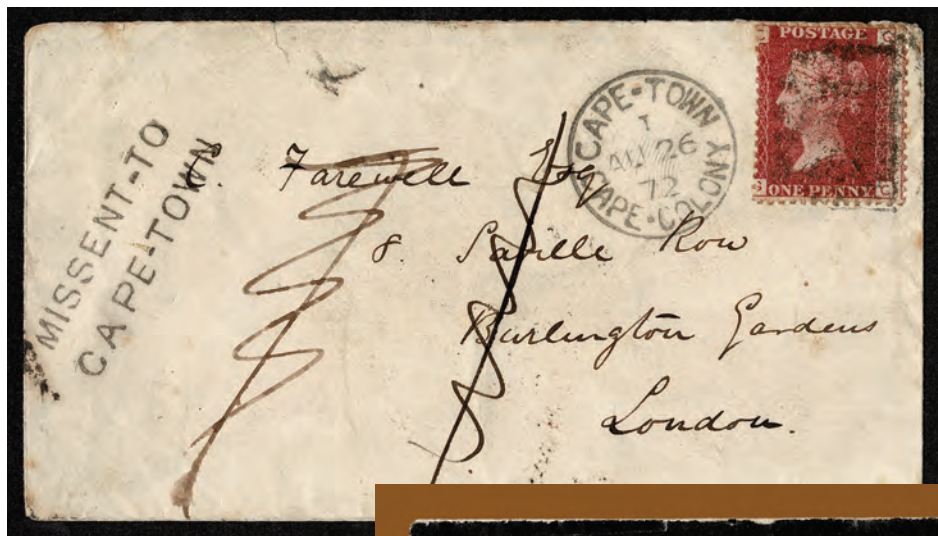 MISSENT-TO
CAPE-TOWN
CAPE-TOWN
1
AU 26
72
CAPE-COLONY
POSTAGE
C
ONE PENNY
C
Farewell Esq
8. Saville Row
Burlington Gardens
London.